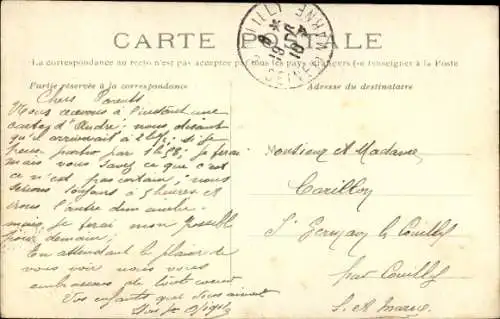 CARTE POSTALE
La correspondance au recto n'est pas acceptée par tous les pays étrangers (se renseigner à la Poste
Partie réservée à la correspondance
Adresse du destinataire
SEINE MARNE
Chers Parents
Nous recevons à l'instant une
carte d'André; nous disant
qu'il arriverait à
par 1458, je ferai
mais vous savez ce que c'est
ce n'est pas certain; nous
serions toujours à 5 heures et
l'autre dimanche
mais je ferai mon possible
pour demain;
En attendant le plaisir de
vous voir nous vous
embrassons de tout coeur
Vos enfants qui vous aiment
Monsieur et Madame
Carillon
St Germain le Couilly
par Couilly
S. et Marne